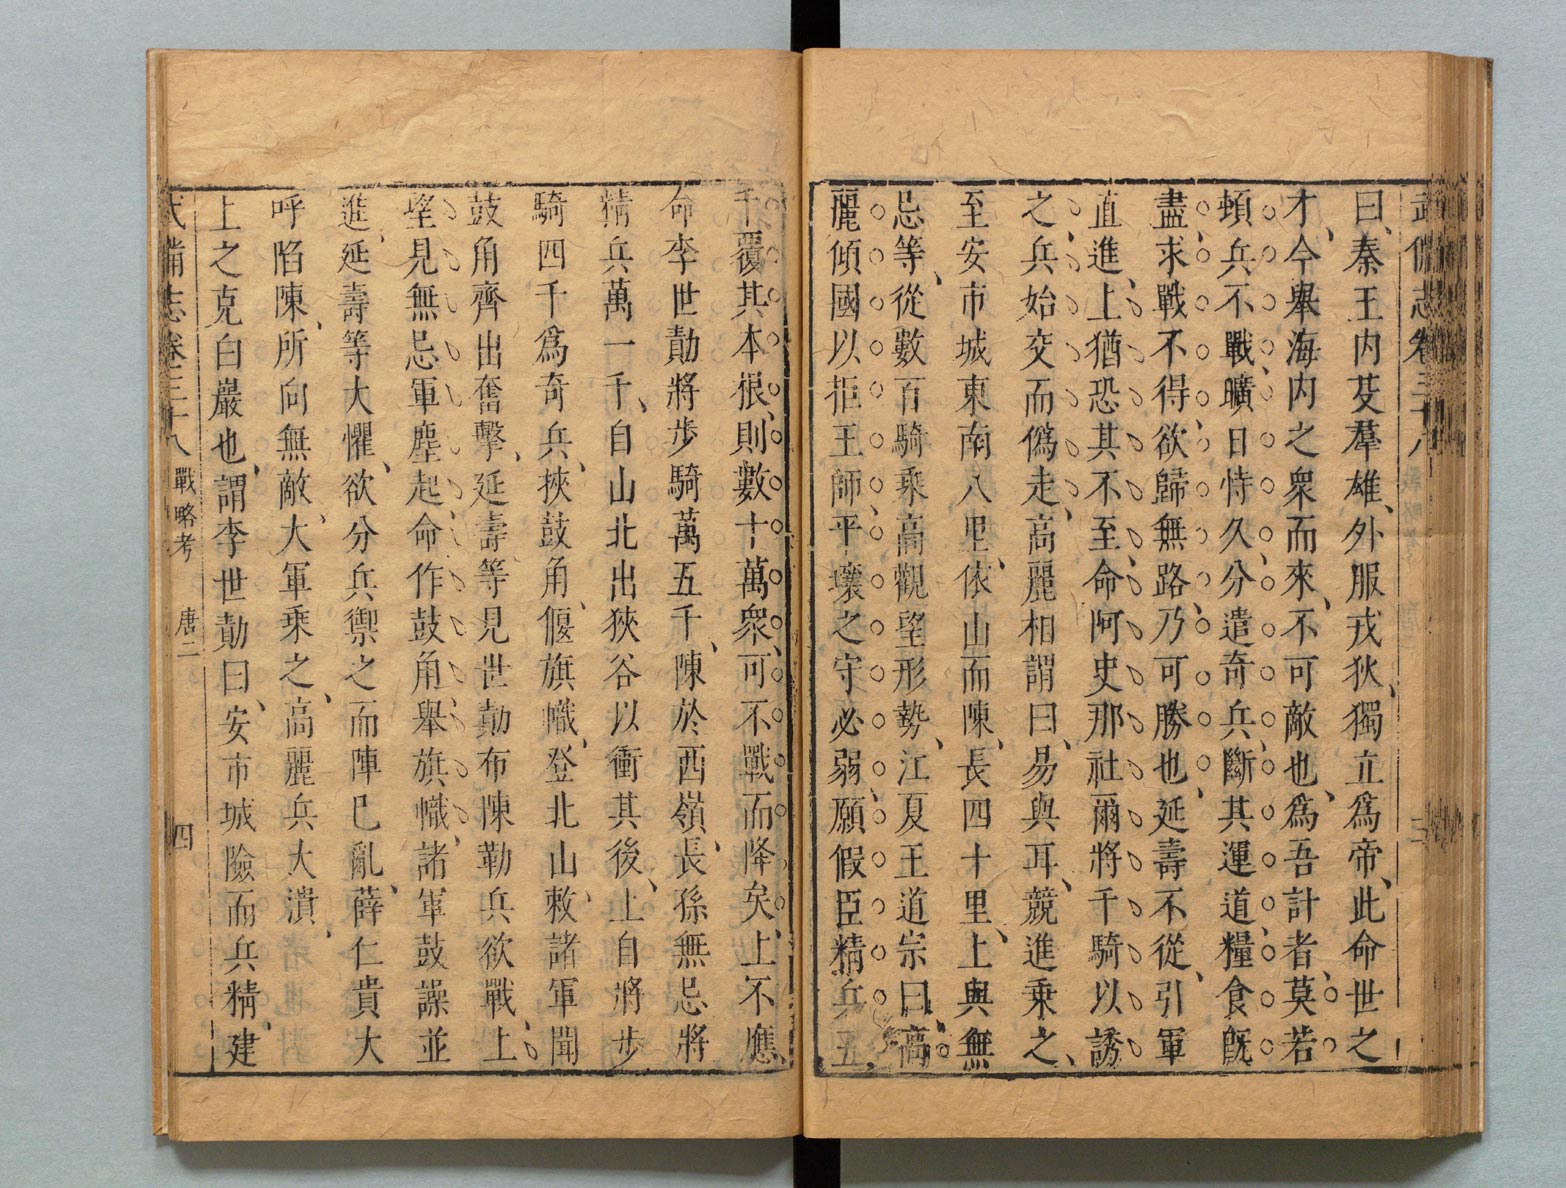 武備志卷三十八
三
曰、秦王内芟羣雄、外服戎狄、獨立爲帝、此命世之
才、今舉海内之衆而來、不可敵也、爲吾計者、莫若
頓兵不戰、曠日持久、分遣奇兵、斷其運道、糧食旣
盡、求戰不得、欲歸無路、乃可勝也、延壽不從、引軍
直進、上猶恐其不至、命阿史那社爾將千騎以誘
之、兵始交而僞走、高麗相謂曰、易與耳、競進乘之、
至安市城東南八里、依山而陳、長四十里、上與無
忌等、從數百騎乘高觀望形勢、江夏王道宗曰、高
麗傾國以拒王師、平壤之守必弱、願假臣精兵五
千覆其本根、則數十萬衆、可不戰而降矣、上不應、
命李世勣將步騎萬五千、陳於西嶺、長孫無忌將
精兵萬一千、自山北出狹谷以衝其後、上自將步
騎四千爲奇兵、挾鼓角、偃旗幟、登北山、敕諸軍聞
鼓角齊出奮擊、延壽等見世勣布陳勒兵欲戰、上
望見無忌軍塵起、命作鼓角舉旗幟、諸軍鼓譟並
進、延壽等大懼、欲分兵禦之、而陣巳亂、薛仁貴大
呼陷陳、所向無敵、大軍乘之、高麗兵大潰、
上之克白巖也、謂李世勣曰、安市城險而兵精、建
武備志卷三十八 戰略考 唐二 四